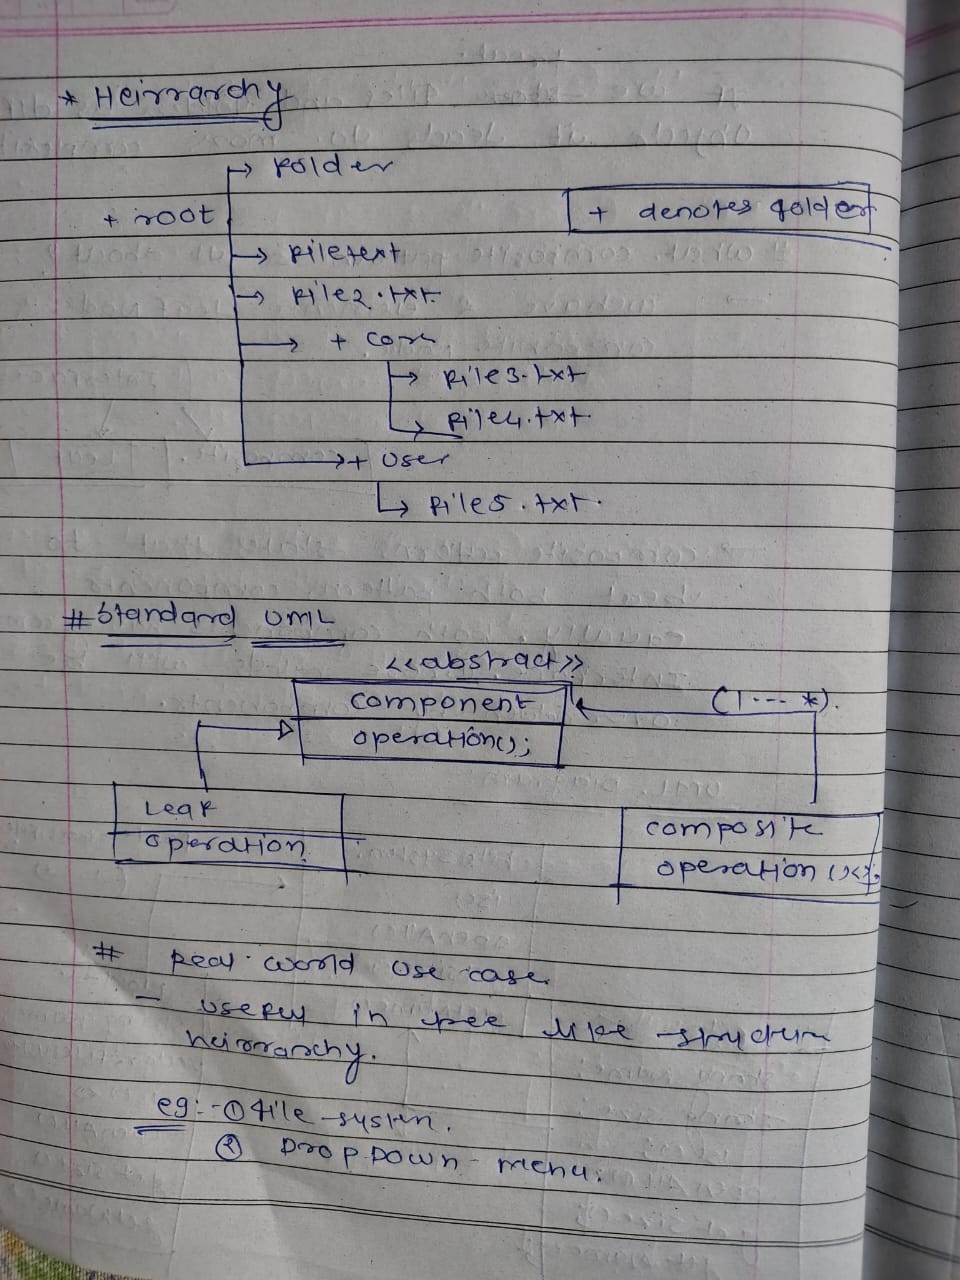 * Heirrarchy
→ Folder
+ root
+ denotes folder
→ File text
→ File2.txt
→ + Com
→ File3.txt
→ File4.txt.
→ + User
→ File5.txt.
# Standard UML
<<abstract>>
component
(1 --- *).
operation();
Leaf
operation
composite
operation
# Real world use case
- useful in tree like structure
heirrarchy.
eg:- ① file system.
② Drop Down menu.